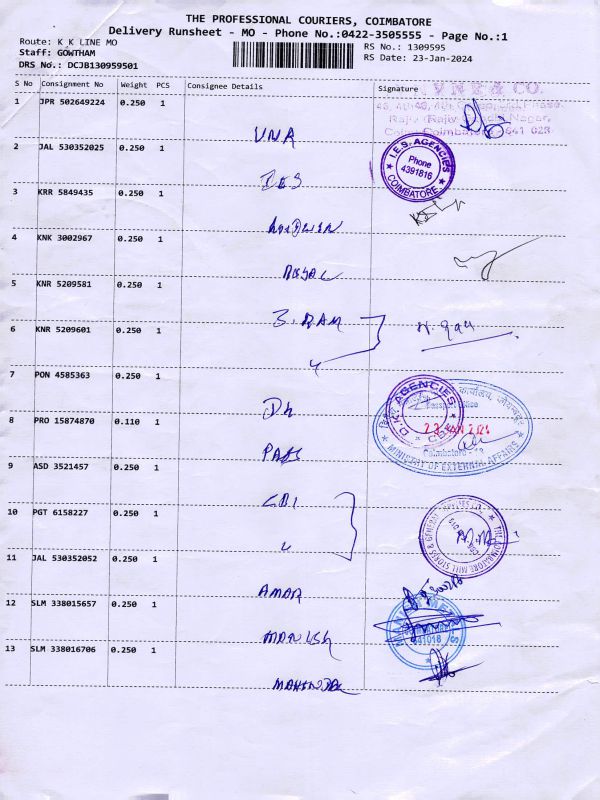 THE PROFESSIONAL COURIERS, COIMBATORE
Delivery Runsheet - MO - Phone No.:0422-3505555 - Page No.:1
Route: K K LINE MO
Staff: GOWTHAM
DRS No.: DCJB130959501
RS No.: 1309595
RS Date: 23-Jan-2024
S No Consignment No Weight PCS Consignee Details Signature
V N R & CO.
Nagar,
Coimbatore - 641 023
1 JPR 502649224 0.250 1 VNR
2 JAL 530352025 0.250 1 IES
I.E.S. AGENCIES
Phone
4391816
COIMBATORE
3 KRR 5849435 0.250 1
4 KNK 3002967 0.250 1 Royal
5 KNR 5209581 0.250 1 S. RAM
6 KNR 5209601 0.250 1 "
7 PON 4585363 0.250 1 Dk
D.K. AGENCIES
CBE
8 PRO 15874870 0.110 1 PASS
Passport Office
23 JAN 2024
Coimbatore - 18
MINISTRY OF EXTERNAL AFFAIRS
9 ASD 3521457 0.250 1
10 PGT 6158227 0.250 1 "
THE COIMBATORE MILL STORES & GENERAL
11 JAL 530352052 0.250 1 AMAR
12 SLM 338015657 0.250 1 MANISH
641018
13 SLM 338016706 0.250 1